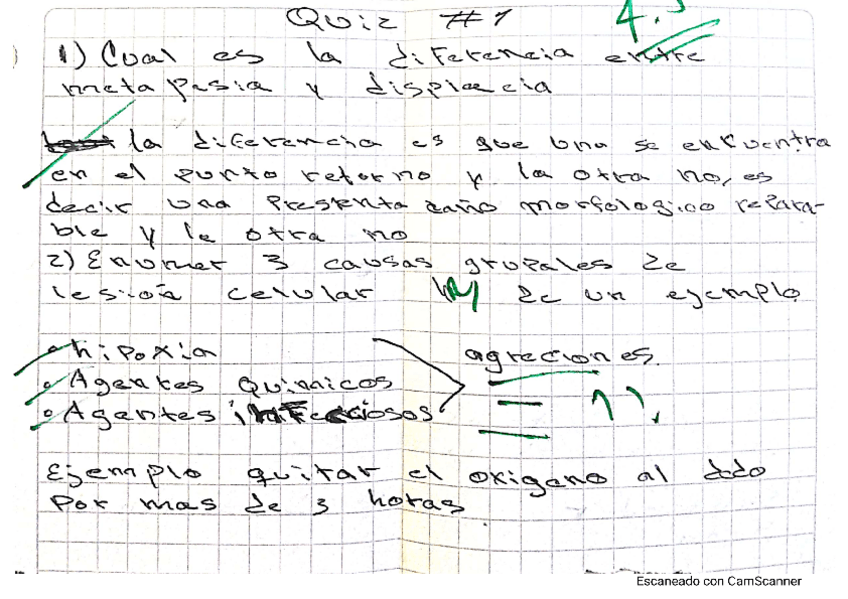 Quiz #1 4.5
1) Cual es la diferencia entre
metapasia y displacia
la diferencia es que una se encuentra
en el punto retorno y la otra no, es
decir una presenta daño morfologico repara-
ble y la otra no
2) Enumer 3 causas grupales de
lesion celular y de un ejemplo
• hipoxia
• Agentes Quimicos
• Agentes infecciosos
agreciones.
Ejemplo quitar el oxigeno al dedo
Por mas de 3 horas
Escaneado con CamScanner